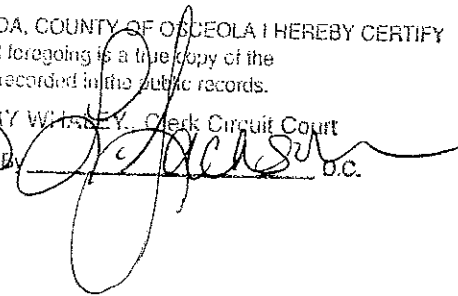 DA, COUNTY OF OSCEOLA I HEREBY CERTIFY
foregoing is a true copy of the
recorded in the public records.
WHALEY. Clerk Circuit Court
By Jackson D.C.